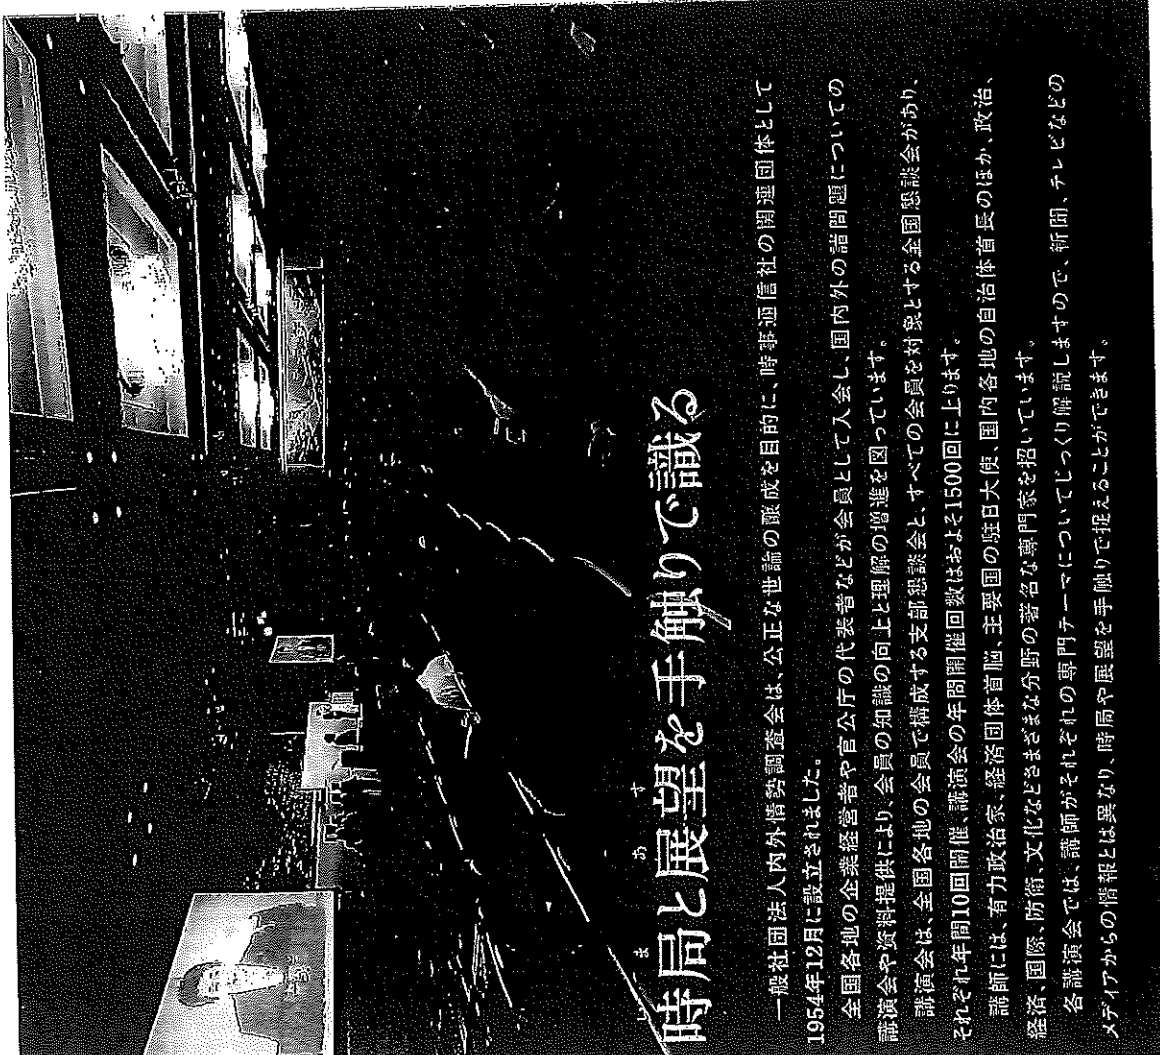 時局と展望を手触りで識る
一般社団法人内外情勢調査会は、公正な世論の醸成を目的に、時事通信社の関連団体として
1954年12月に設立されました。
全国各地の企業経営者や官公庁の代表者などが会員として入会し、国内外の諸問題についての
講演会や資料提供により、会員の知識の向上と理解の増進を図っています。
講演会は、全国各地の会員で構成する支部懇談会と、すべての会員を対象とする全国懇談会があり、
それぞれ年間10回開催、講演会の年間開催回数はおよそ1500回に上ります。
講師には、有力政治家、経済団体首脳、主要国の駐日大使、国内各地の自治体首長のほか、政治、
経済、国際、防衛、文化などさまざまな分野の著名な専門家を招いています。
各講演会では、講師がそれぞれの専門テーマについてじっくり解説しますので、新聞、テレビなどの
メディアからの情報とは異なり、時局や展望を手触りで捉えることができます。